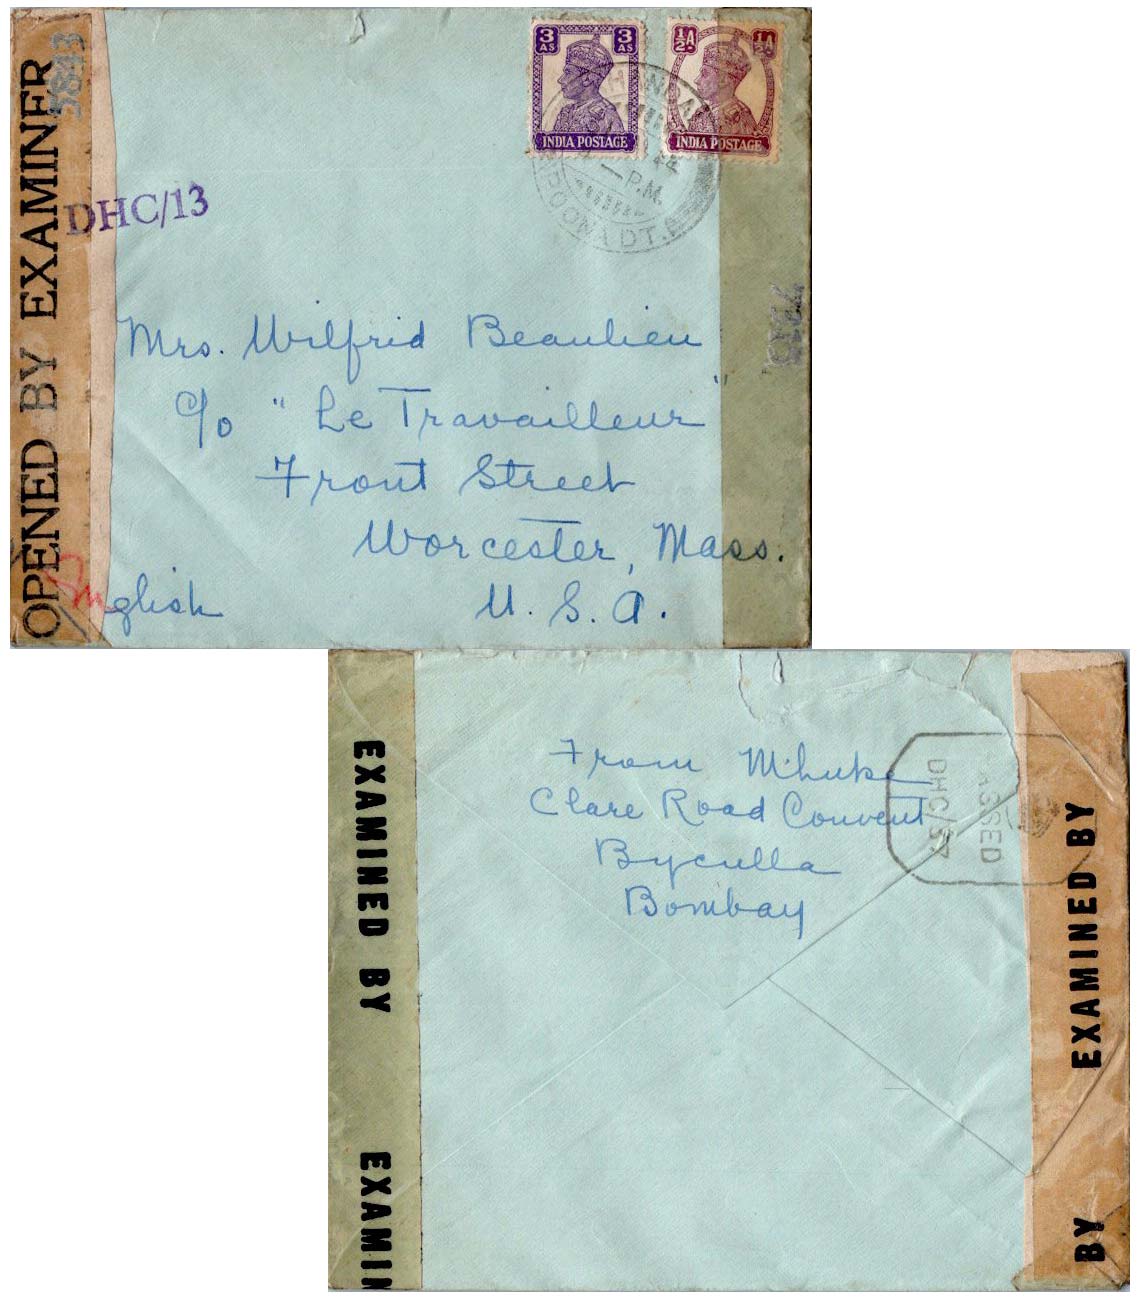 OPENED BY EXAMINER
5843
DHC/13
3 3
AS AS
INDIA POSTAGE
½A ½A
INDIA POSTAGE
P.M.
POONA DT.
Mrs. Wilfrid Beaulieu
c/o "Le Travailleur"
Front Street
Worcester, Mass.
U. S. A.
English
EXAMINED BY
EXAMIN
From M'huke
Clare Road Convent
Byculla
Bombay
ASSED
DHC/37
EXAMINED BY
BY